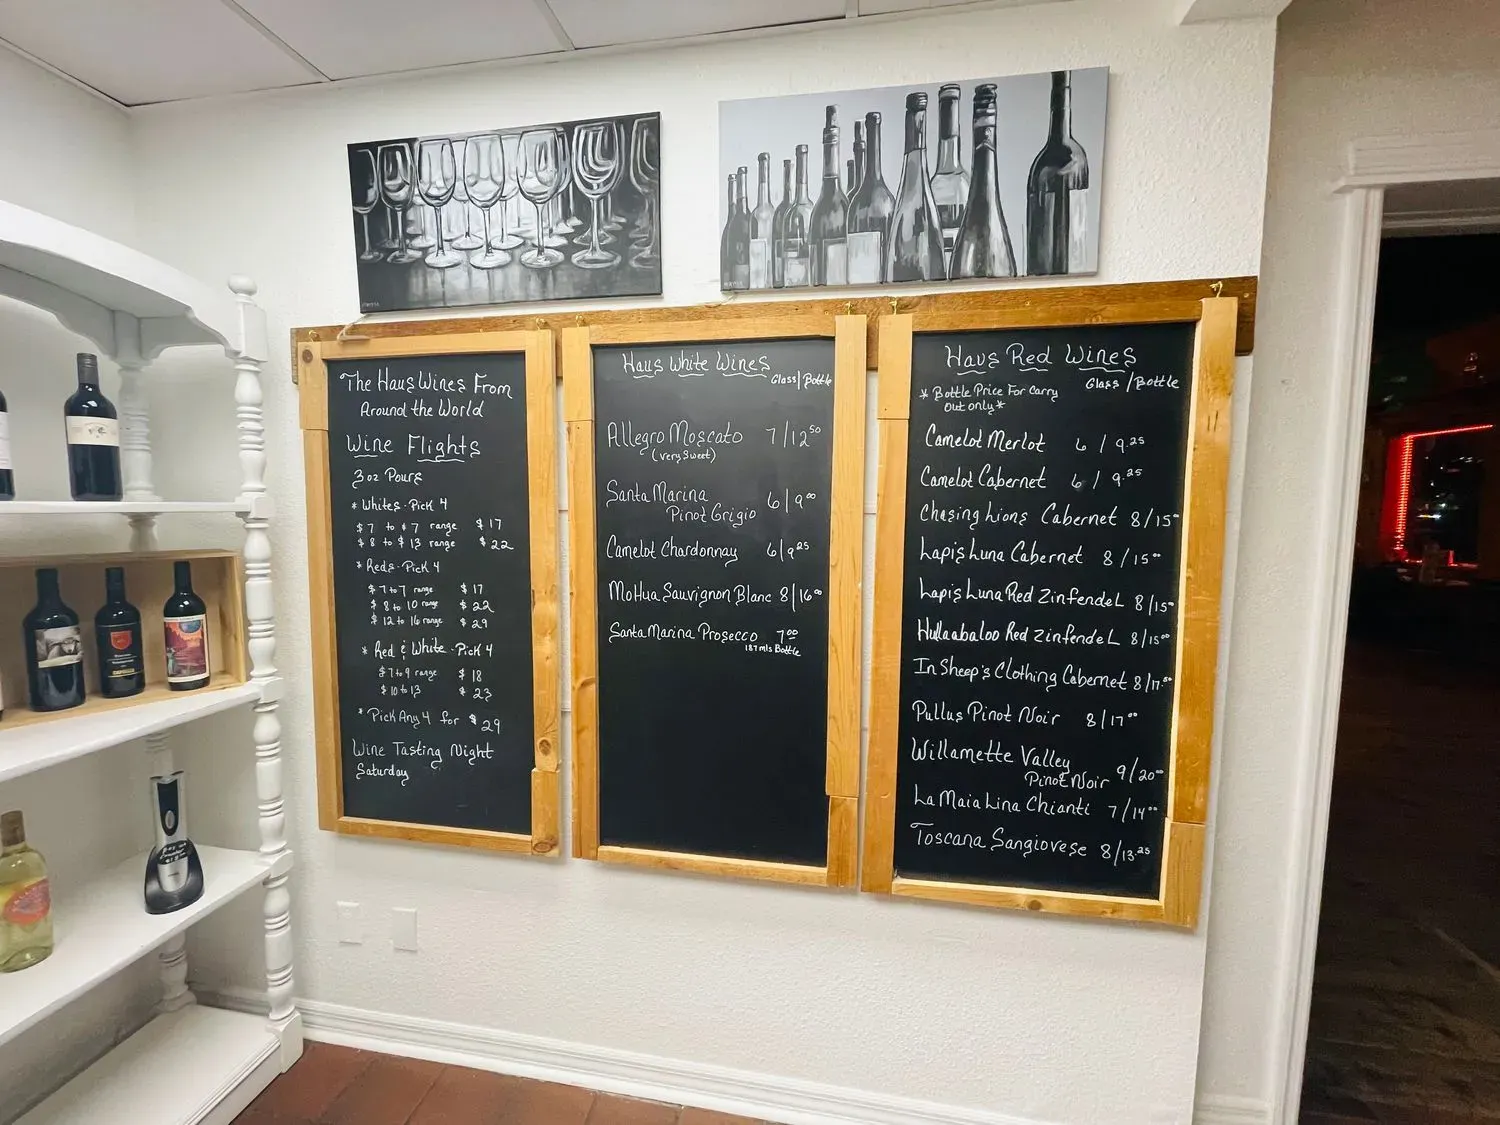 The Haus Wines From
Around the World
Wine Flights
3 oz Pours
* Whites - Pick 4
$7 to $7 range $17
$8 to $13 range $22
* Reds - Pick 4
$7 to 7 range $17
$8 to 10 range $22
$12 to 16 range $29
* Red & White - Pick 4
$7 to 9 range $18
$10 to 13 $23
* Pick Any 4 for $29
Wine Tasting Night
Saturday
Haus White Wines
Glass/Bottle
Allegro Moscato 7/12 50
(very sweet)
Santa Marina
Pinot Grigio 6/9 00
Camelot Chardonnay 6/9 25
MoHua Sauvignon Blanc 8/16 00
Santa Marina Prosecco 7 00
187 mls Bottle
Haus Red Wines
Glass/Bottle
* Bottle Price For Carry
Out only *
Camelot Merlot 6/9.25
Camelot Cabernet 6/9.25
Chasing Lions Cabernet 8/15 00
Lapis Luna Cabernet 8/15 00
Lapis Luna Red Zinfandel 8/15 00
Hullaabaloo Red Zinfendel 8/15 00
In Sheep's Clothing Cabernet 8/17.50
Pullus Pinot Noir 8/17 00
Willamette Valley
Pinot Noir 9/20 00
La Maia Lina Chianti 7/14 00
Toscana Sangiovese 8/13.25